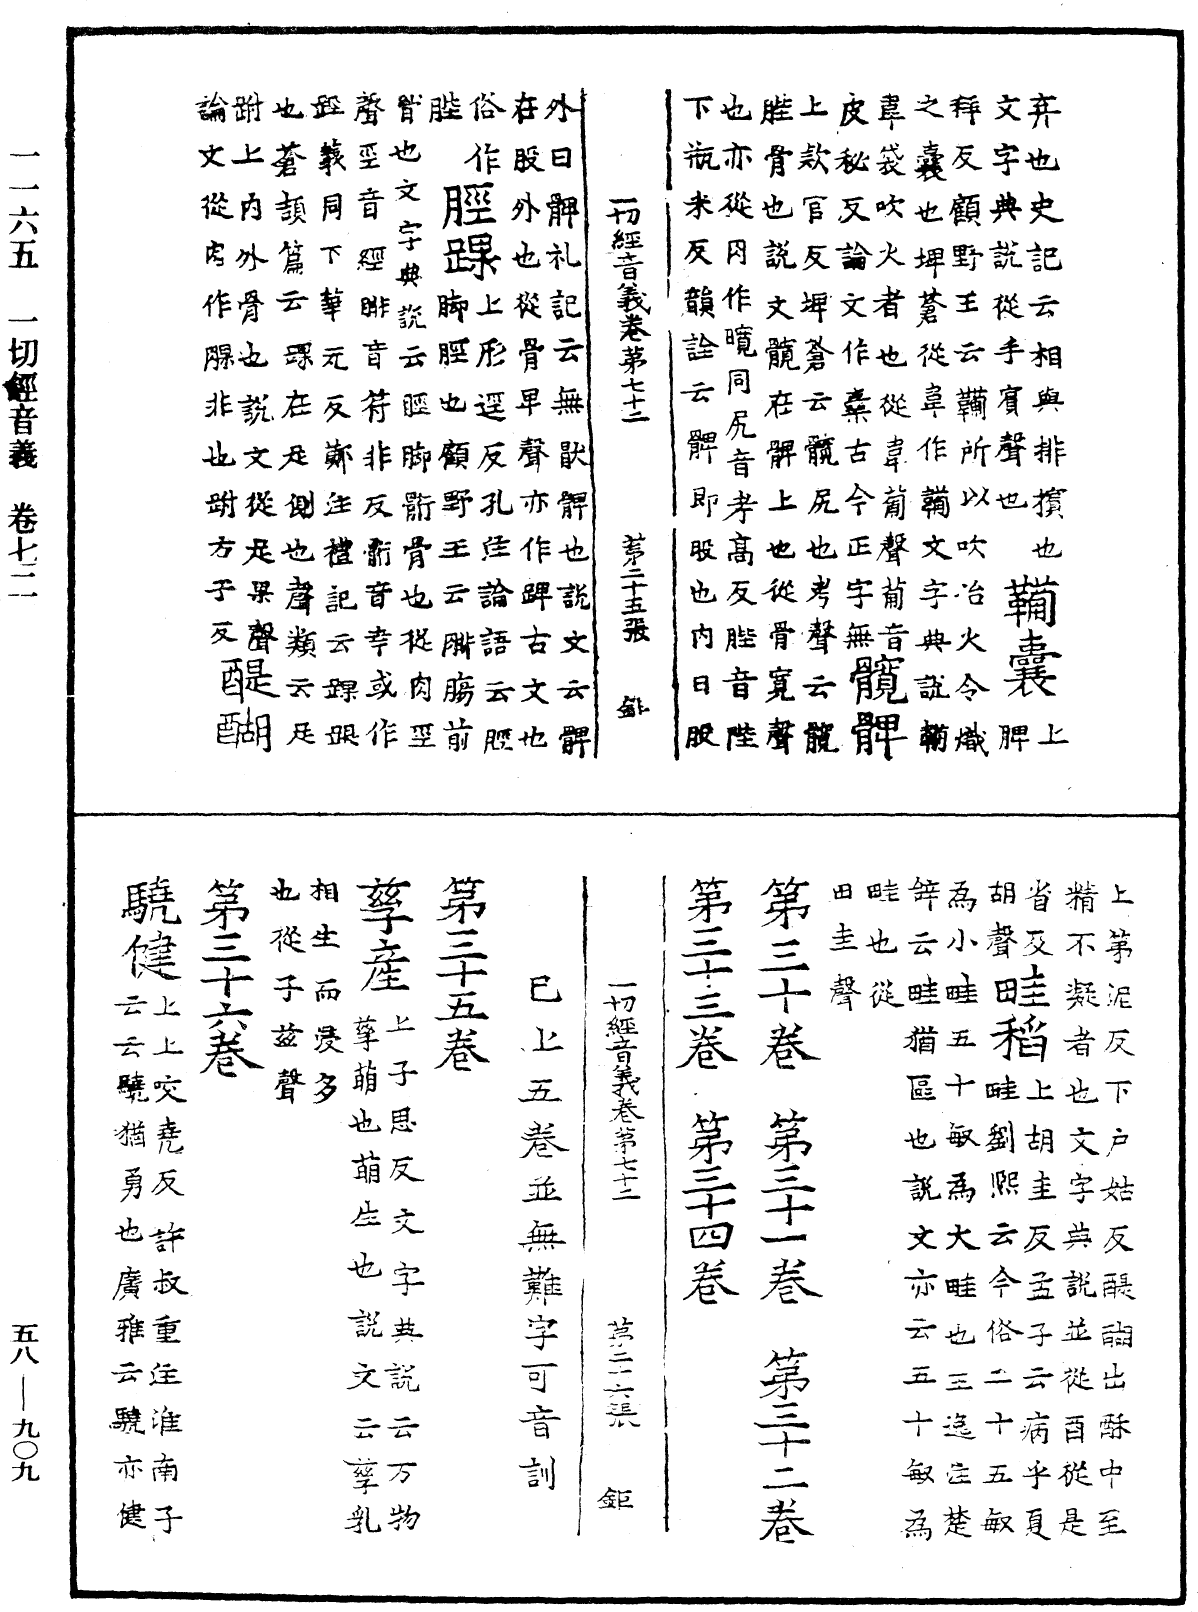 弃也史記云相與排擯也鞴囊上
文字典說從手賓聲也脾
拜反顧野王云鞴所以吹冶火令熾
之囊也埤蒼從韋作鞴文字典說鞴
韋袋吹火者也從韋葡聲葡音
皮秘反論文作橐古今正字無髖髀
上款官反埤蒼云髖尻也考聲云髖
䏶骨也說文髖在髀上也從骨寬聲
也亦從肉作臗同尻音考高反䏶音陛
下瓶米反韻詮云髀即股也内曰股
一切經音義卷第七十二 第二十五張 鉅
外曰髀礼記云無猒髀也說文云髀
在股外也從骨卑聲亦作踔古文也
俗作脛踝上形逕反孔注論語云脛
䏶脚脛也顧野王云腓腸前
骨也文字典說云脛脚䯒骨也從肉巠
聲巠音經腓音符非反䯒音幸或作
踁義同下華元反鄭注禮記云踝跟
也蒼頡篇云踝在足側也聲類云足
跗上内外骨也說文從足果聲醍醐
論文從肉作腂非也跗方于反
上第泥反下户姑反醍醐出酥中至
精不凝者也文字典說並從酉從是
省反畦稻上胡圭反孟子云病乎夏
胡聲畦劉熙云今俗二十五畝
為小畦五十畝為大畦也王逸注楚
辤云畦猶區也說文亦云五十畝為
畦也從
田圭聲
第三十卷 第三十一卷 第三十二卷
第三十三卷 第三十四卷
一切經音義卷第七十二 第二十六張 鉅
已上五卷並無難字可音訓
第三十五卷
孳產上子思反文字典說云万物
孳萌也萌生也說文云孳乳
相生而浸多
也從子茲聲
第三十六卷
驍健上上咬堯反許叔重注淮南子
云云驍猶勇也廣雅云驍亦健
一一六五 一切經音義 卷七二
五八—九〇九